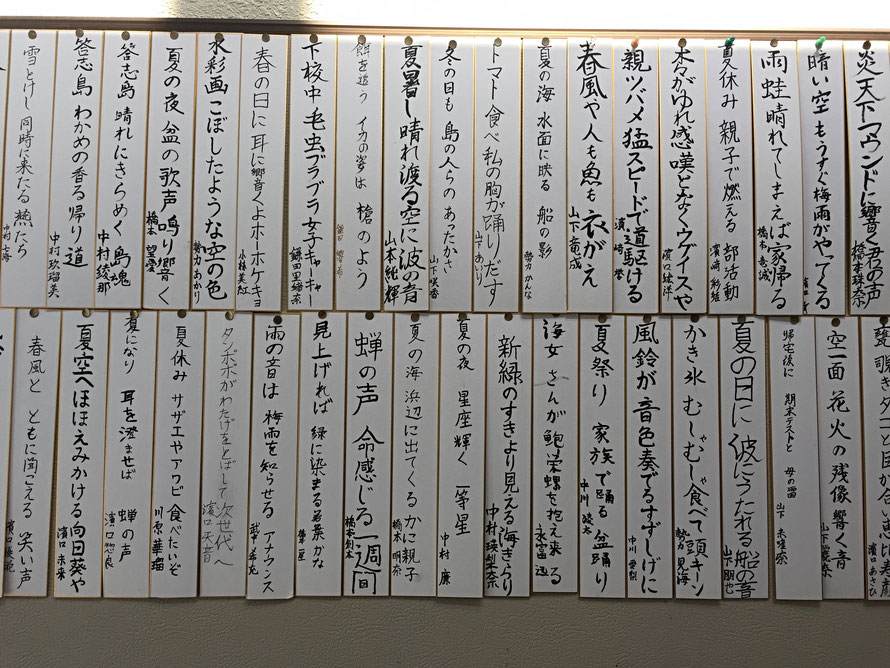 炎天下マウンドに響く君の声
橋本珠奈
暗い空もうすぐ梅雨がやってくる
雨蛙晴れてしまえば家帰る
橋本竜誠
夏休み親子で燃える部活動
濱崎
木々がゆれ感嘆となくウグイスや
濱口
親ツバメ猛スピードで道駆ける
濱崎
春風や人も魚も衣がえ
山下竜成
夏の海水面に映る船の影
勢力かんな
トマト食べ私の胸が踊りだす
山下あいり
冬の日も島の人らのあったかさ
山下咲香
夏暑し晴れ渡る空に波の音
山本純輝
餌を追うイカの姿は槍のよう
下校中毛虫ブラブラ女子キャーキャー
鎌田里瑠奈
春の日に耳に響くよホーホケキョ
小林美紅
水彩画こぼしたような空の色
勢力あかり
夏の夜盆の歌声鳴り響く
橋本望愛
答志島晴れにきらめく島魂
中村綾那
答志島わかめの香る帰り道
中村玖瑠美
雪とけし同時に来たる燕たち
中村七海
空一面花火の残像響く音
帰宅後に期末テストと母の雷
山下
夏の日に波にうたれる船の音
山下朋也
かき氷むしゃむしゃ食べて頭キーン
勢力見海
風鈴が音色奏でるすずしげに
中川愛梨
夏祭り家族で踊る盆踊り
中川
海女さんが鮑栄螺を抱え来る
永富迅
新緑のすきより見える海きらり
中村瑛梨奈
夏の夜星座輝く一等星
中村廉
夏の海浜辺に出てくるかに親子
橋本明奈
蝉の声命感じる一週間
橋本
見上げれば緑に染まる若葉かな
雨の音は梅雨を知らせるアナウンス
タンポポがわたげをとばして次世代へ
濱口天音
夏休みサザエやアワビ食べたいぞ
川原華瑠
夏になり耳を澄ませば蝉の声
濱口惣良
夏空へほほえみかける向日葵や
濱口未来
春風とともに聞こえる笑い声